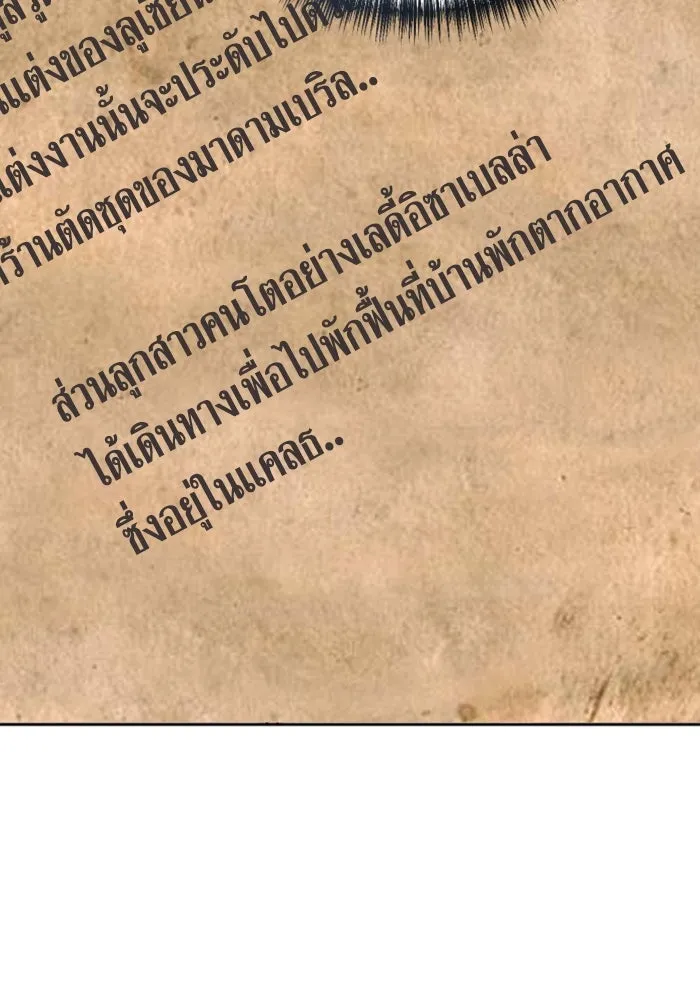 แต่งของลูเซียน
แต่งงานนั้นจะประดับไปด้วย
ร้านตัดชุดของมาดามเบริล..
ส่วนลูกสาวคนโตอย่างเลดี้อิซาเบลล่า
ได้เดินทางเพื่อไปพักฟื้นที่บ้านพักตากอากาศ
ซึ่งอยู่ในแคลธ..